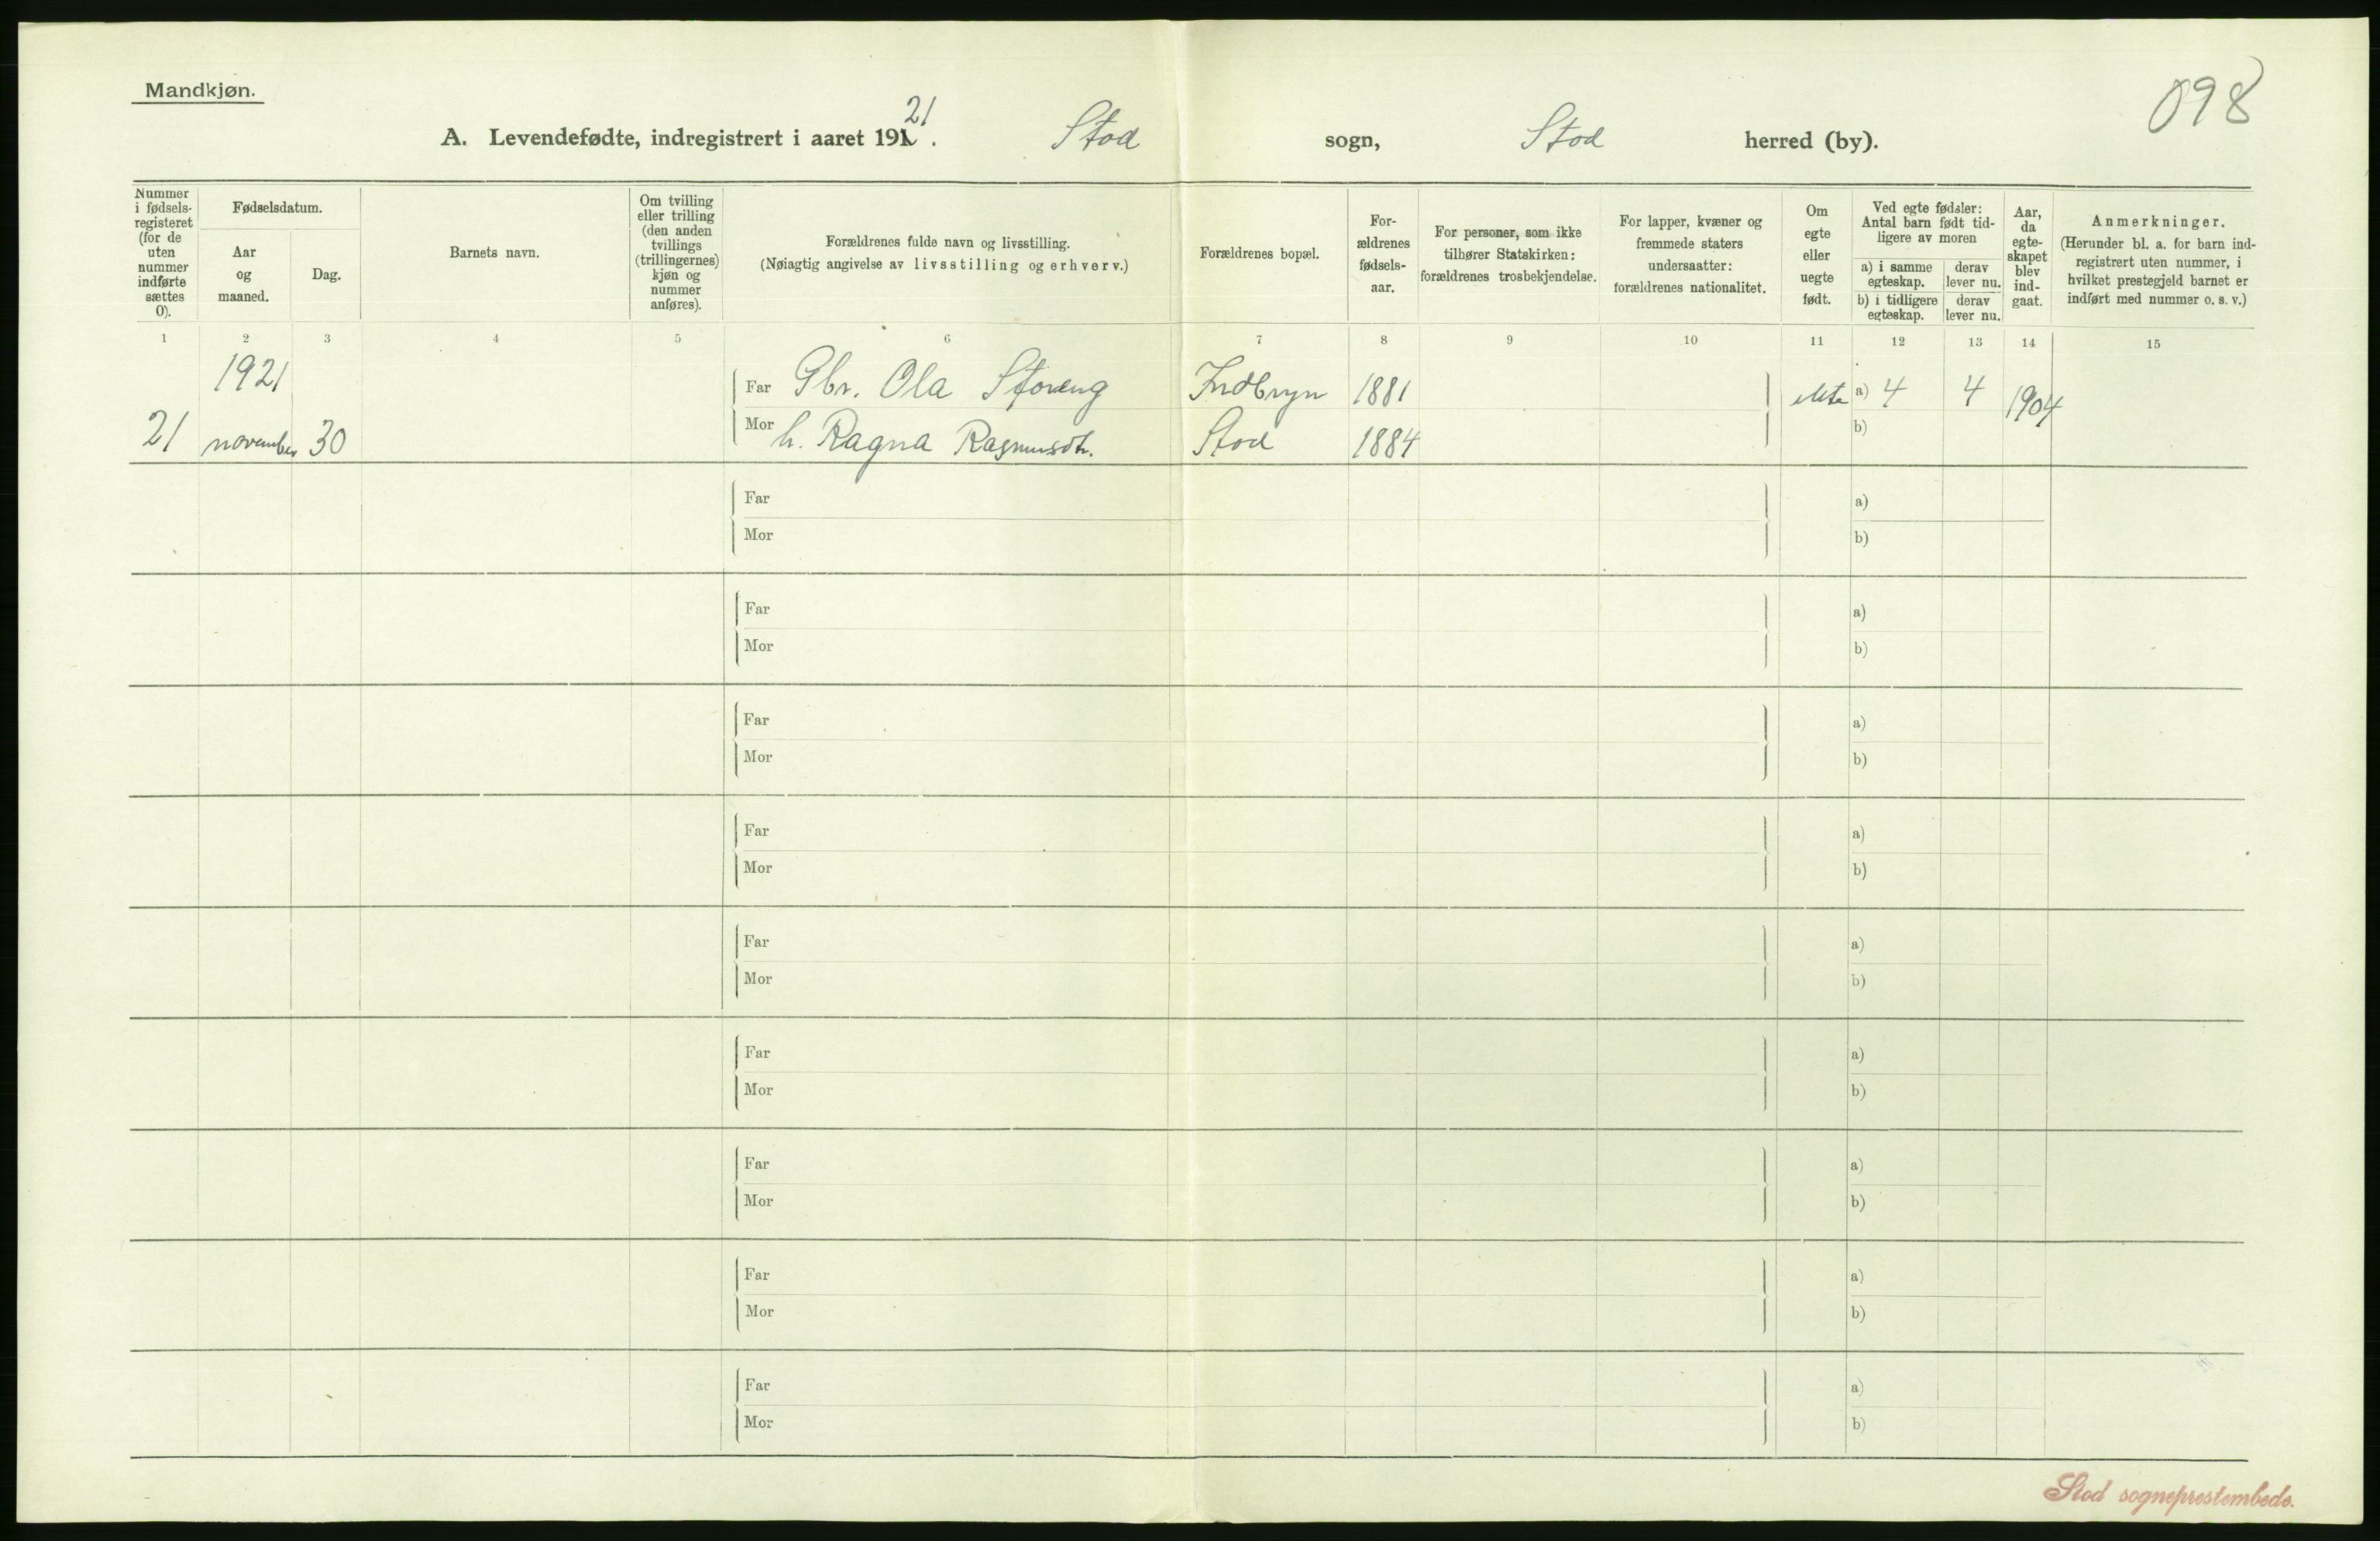 Mandkjøn.
098
A. Levendefødte, indregistrert i aaret 1921. Stod sogn, Stod herred (by).
Nummer i fødsels-registeret (for de uten nummer indførte sættes 0).
Fødselsdatum.
Aar og maaned.
Dag.
Barnets navn.
Om tvilling eller trilling (den anden tvillings (trillingernes) kjøn og nummer anføres).
Forældrenes fulde navn og livsstilling.
(Nøiagtig angivelse av livsstilling og erhverv.)
Forældrenes bopæl.
For-ældrenes fødsels-aar.
For personer, som ikke tilhører Statskirken: forældrenes trosbekjendelse.
For lapper, kvæner og fremmede staters undersaatter: forældrenes nationalitet.
Om egte eller uegte født.
Ved egte fødsler: Antal barn født tid-ligere av moren
a) i samme egteskap.
derav lever nu.
b) i tidligere egteskap.
derav lever nu.
Aar, da egte-skapet blev ind-gaat.
Anmerkninger.
(Herunder bl. a. for barn ind-registrert uten nummer, i hvilket prestegjeld barnet er indført med nummer o. s. v.)
1 2 3 4 5 6 7 8 9 10 11 12 13 14 15
1921 Far Gbr. Ola Storeng 1881 a) 4 4 1904
21 november 30 Mor h. Ragna Rasmusdtr. Stod 1884 b)
Far a)
Mor b)
Far a)
Mor b)
Far a)
Mor b)
Far a)
Mor b)
Far a)
Mor b)
Far a)
Mor b)
Far a)
Mor b)
Far a)
Mor b)
Far a)
Mor b)
Stod sogneprestembede.